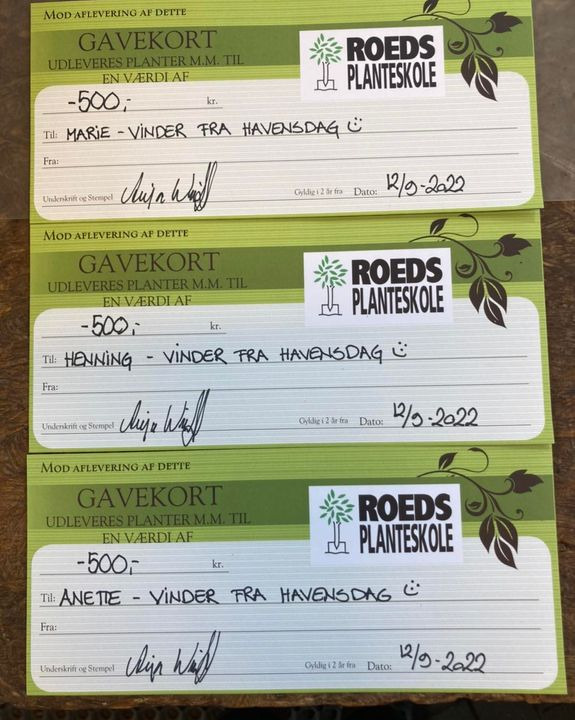 MOD AFLEVERING AF DETTE
GAVEKORT
UDLEVERES PLANTER M.M. TIL
EN VÆRDI AF
ROEDS
PLANTESKOLE
-500,- kr.
Til: MARIE - VINDER FRA HAVENSDAG
Fra:
Underskrift og Stempel Gyldig i 2 år fra Dato: 12/9-2022
MOD AFLEVERING AF DETTE
GAVEKORT
UDLEVERES PLANTER M.M. TIL
EN VÆRDI AF
ROEDS
PLANTESKOLE
-500,- kr.
Til: HENNING - VINDER FRA HAVENSDAG
Fra:
Underskrift og Stempel Gyldig i 2 år fra Dato: 12/9-2022
MOD AFLEVERING AF DETTE
GAVEKORT
UDLEVERES PLANTER M.M. TIL
EN VÆRDI AF
ROEDS
PLANTESKOLE
-500,- kr.
Til: ANETTE - VINDER FRA HAVENSDAG
Fra:
Underskrift og Stempel Gyldig i 2 år fra Dato: 12/9-2022